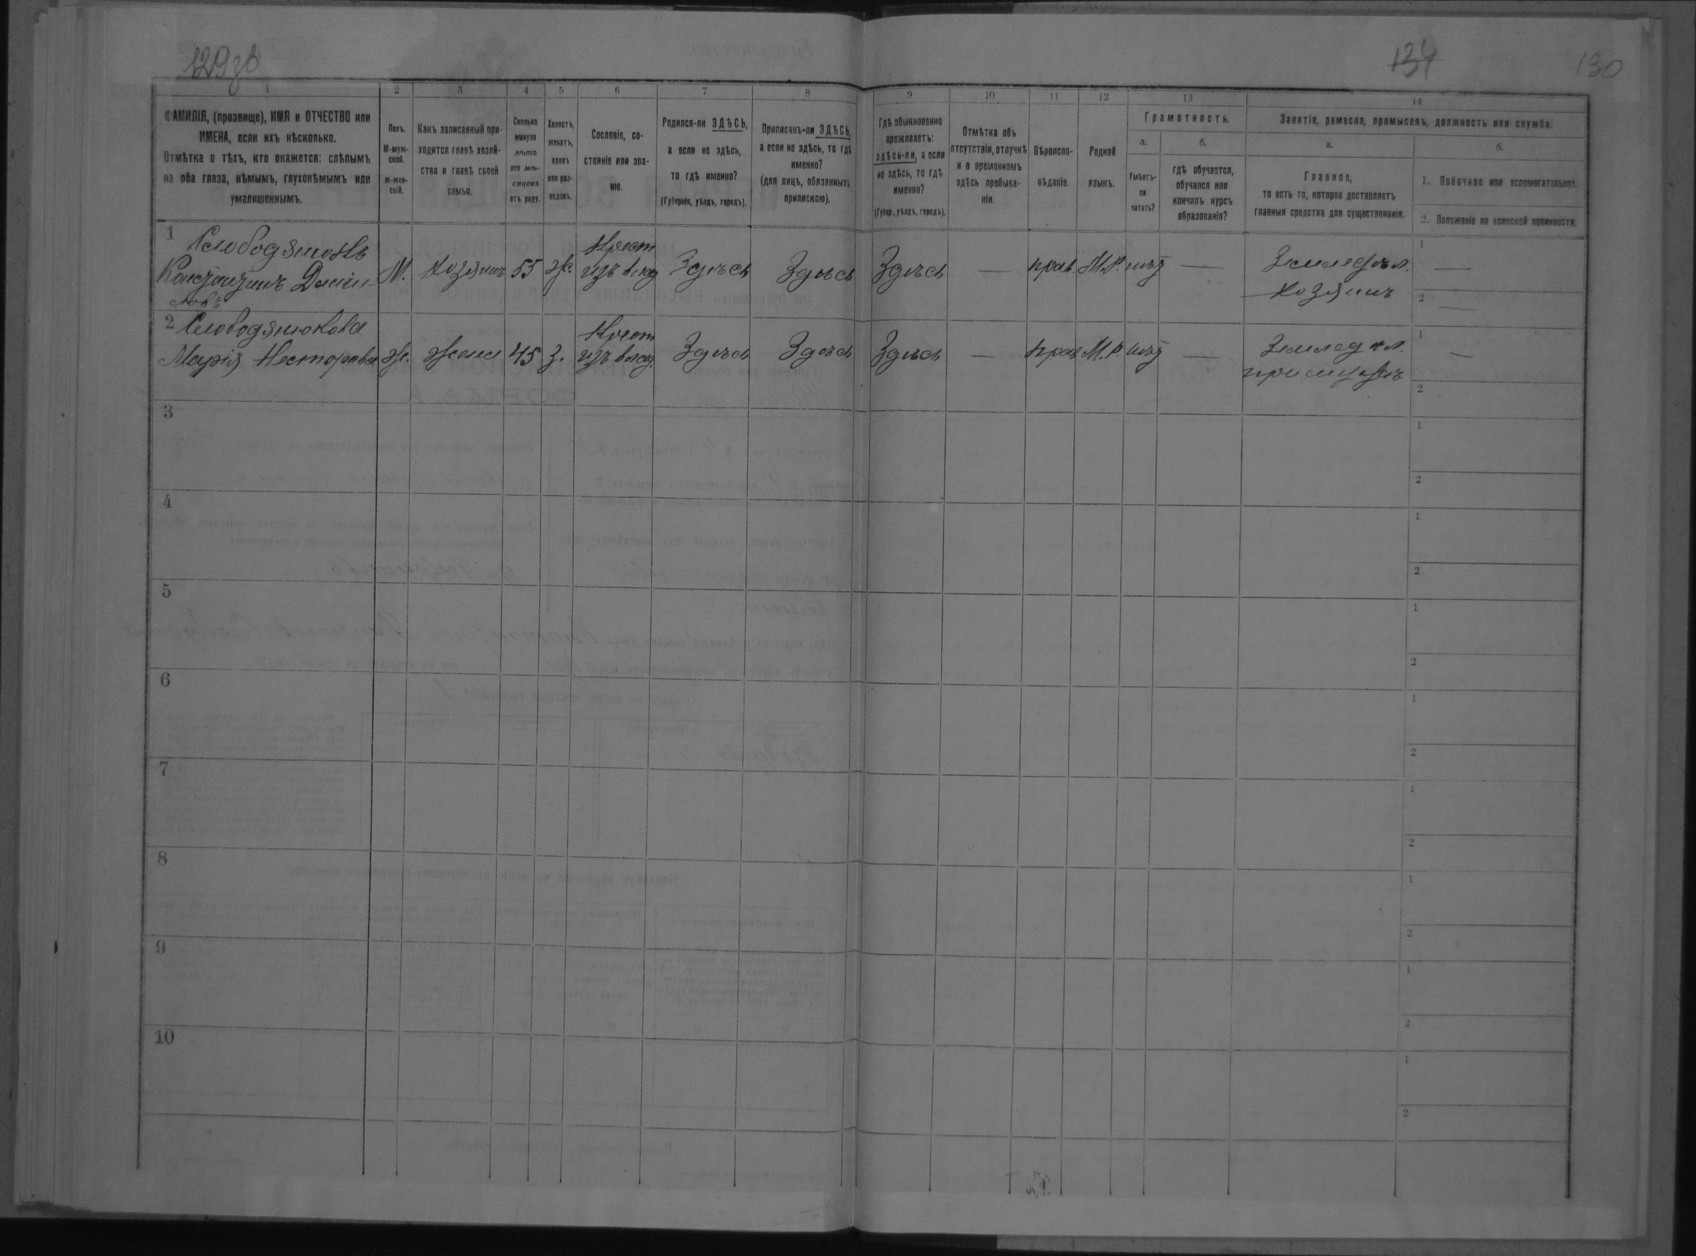 129об
134
130
1 2 3 4 5 6 7 8 9 10 11 12 13 14
ФАМИЛІЯ, (прозвище), ИМЯ и ОТЧЕСТВО или
ИМЕНА, если ихъ нѣсколько.
Отмѣтка о тѣхъ, кто окажется: слѣпымъ
на оба глаза, нѣмымъ, глухонѣмымъ или
умалишеннымъ.
Полъ.
М-муж-
ской.
Ж-жен-
скій.
Какъ записанный при-
ходится главѣ хозяй-
ства и главѣ своей
семьи.
Сколько
минуло
лѣтъ
или мѣ-
сяцевъ
отъ роду.
Холостъ,
женатъ,
вдовъ
или раз-
веденъ.
Сословіе, со-
стояніе или зва-
ніе.
Родился-ли ЗДѢСЬ,
а если не здѣсь,
то гдѣ именно?
(Губернія, уѣздъ, городъ).
Приписанъ-ли ЗДѢСЬ,
а если не здѣсь, то гдѣ
именно?
(для лицъ, обязанныхъ
припискою).
Гдѣ обыкновенно
проживаетъ:
здѣсь-ли, а если
не здѣсь, то гдѣ
именно?
(Губер., уѣздъ, городъ).
Отмѣтка объ
отсутствіи, отлучкѣ
и о временномъ
здѣсь пребыва-
ніи.
Вѣроиспо-
вѣданіе.
Родной
языкъ.
Грамотность.
а.
Умѣетъ-
ли
читать?
б.
гдѣ обучается,
обучался или
кончилъ курсъ
образованія?
Занятіе, ремесло, промыселъ, должность или служба.
а.
Главное,
то есть то, которое доставляетъ
главныя средства для существованія.
б.
1. Побочное или вспомогательное.
2. Положеніе по воинской повинности.
1 Слободянюкъ
Константинъ Данiи-
ловъ
М. хозяинъ 55 ж.
Крест.
изъ влад.
Здѣсь Здѣсь Здѣсь — прав. М.Р. нѣтъ —
Земледѣл.
хозяинъ
1 —
2
2 Слободянюкова
Марія Несторовна
ж. жена 45 з.
Крест.
изъ влад.
Здѣсь Здѣсь Здѣсь — прав. М.Р. нѣтъ —
Землед ѣл.
при мужѣ
1 —
2
3 1
2
4 1
2
5 1
2
6 1
2
7 1
2
8 1
2
9 1
2
10 1
2